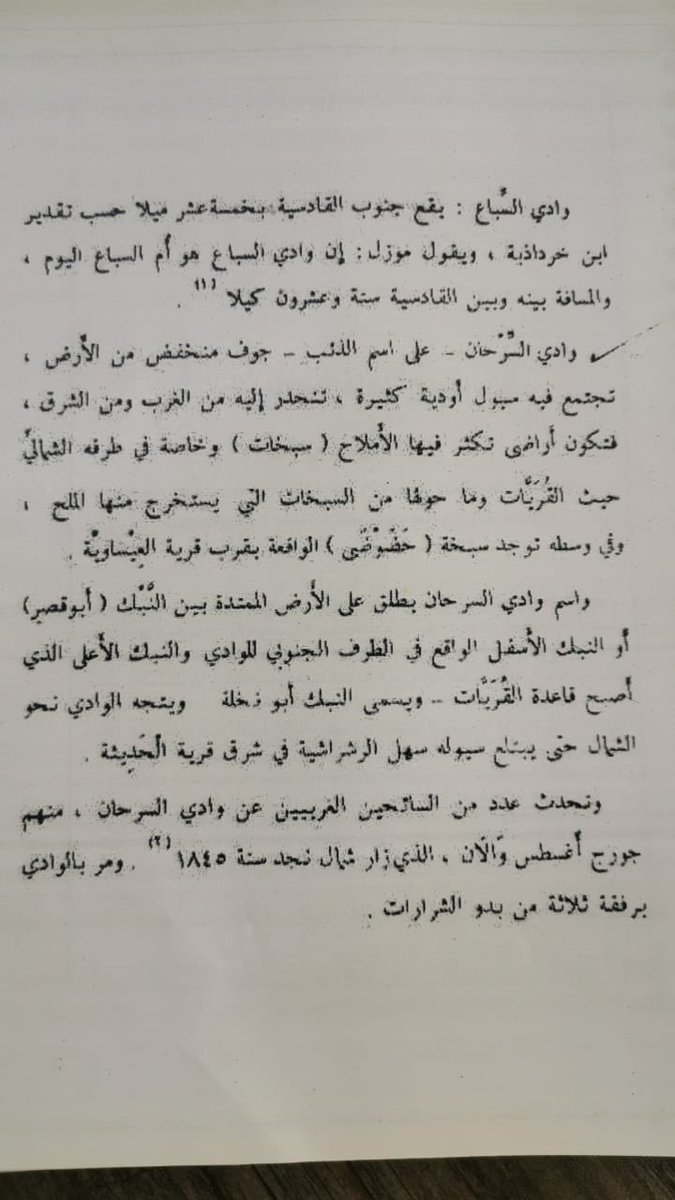 وادي السِّباع : يقع جنوب القادسية بخمسة عشر ميلا حسب تقدير
ابن خرداذبة ، ويقول موزل : إن وادي السباع هو أم السباع اليوم ،
والمسافة بينه وبين القادسية ستة وعشرون كيلا (١) .
وادي السِّرْحان – على اسم الذئب – جوف منخفض من الأَرض ،
تجتمع فيه سيول أَودية كثيرة ، تنحدر إليه من الغرب ومن الشرق ،
فتكون أراضى تكثر فيها الأَملاح ( سبخات ) وخاصة في طرفه الشماليِّ
حيث القُرَيَّات وما حولها من السبخات التي يستخرج منها الملح ،
وفي وسطه توجد سبخة ( حَضَوْضَى ) الواقعة بقرب قرية العِيْساوِيَّة .
واسم وادي السرحان يطلق على الأَرض الممتدة بين النَّبْك ( أَبوقصر )
أَو النبك الأَسفل الواقع في الطرف الجنوبي للوادي والنبك الأَعلى الذي
أَصبح قاعدة القُرَيَّات – ويسمى النبك أبو نخلة ويتجه الوادي نحو
الشمال حتى يبتلع سيوله سهل الرشراشية في شرق قرية الْحَدِيثة .
وتحدث عدد من السائحين الغربيين عن وادي السرحان ، منهم
جورج أَغسطس وَالَان ، الذي زار شمال نجد سنة ١٨٤٥ (٢) . ومر بالوادي
برفقة ثلاثة من بدو الشرارات .